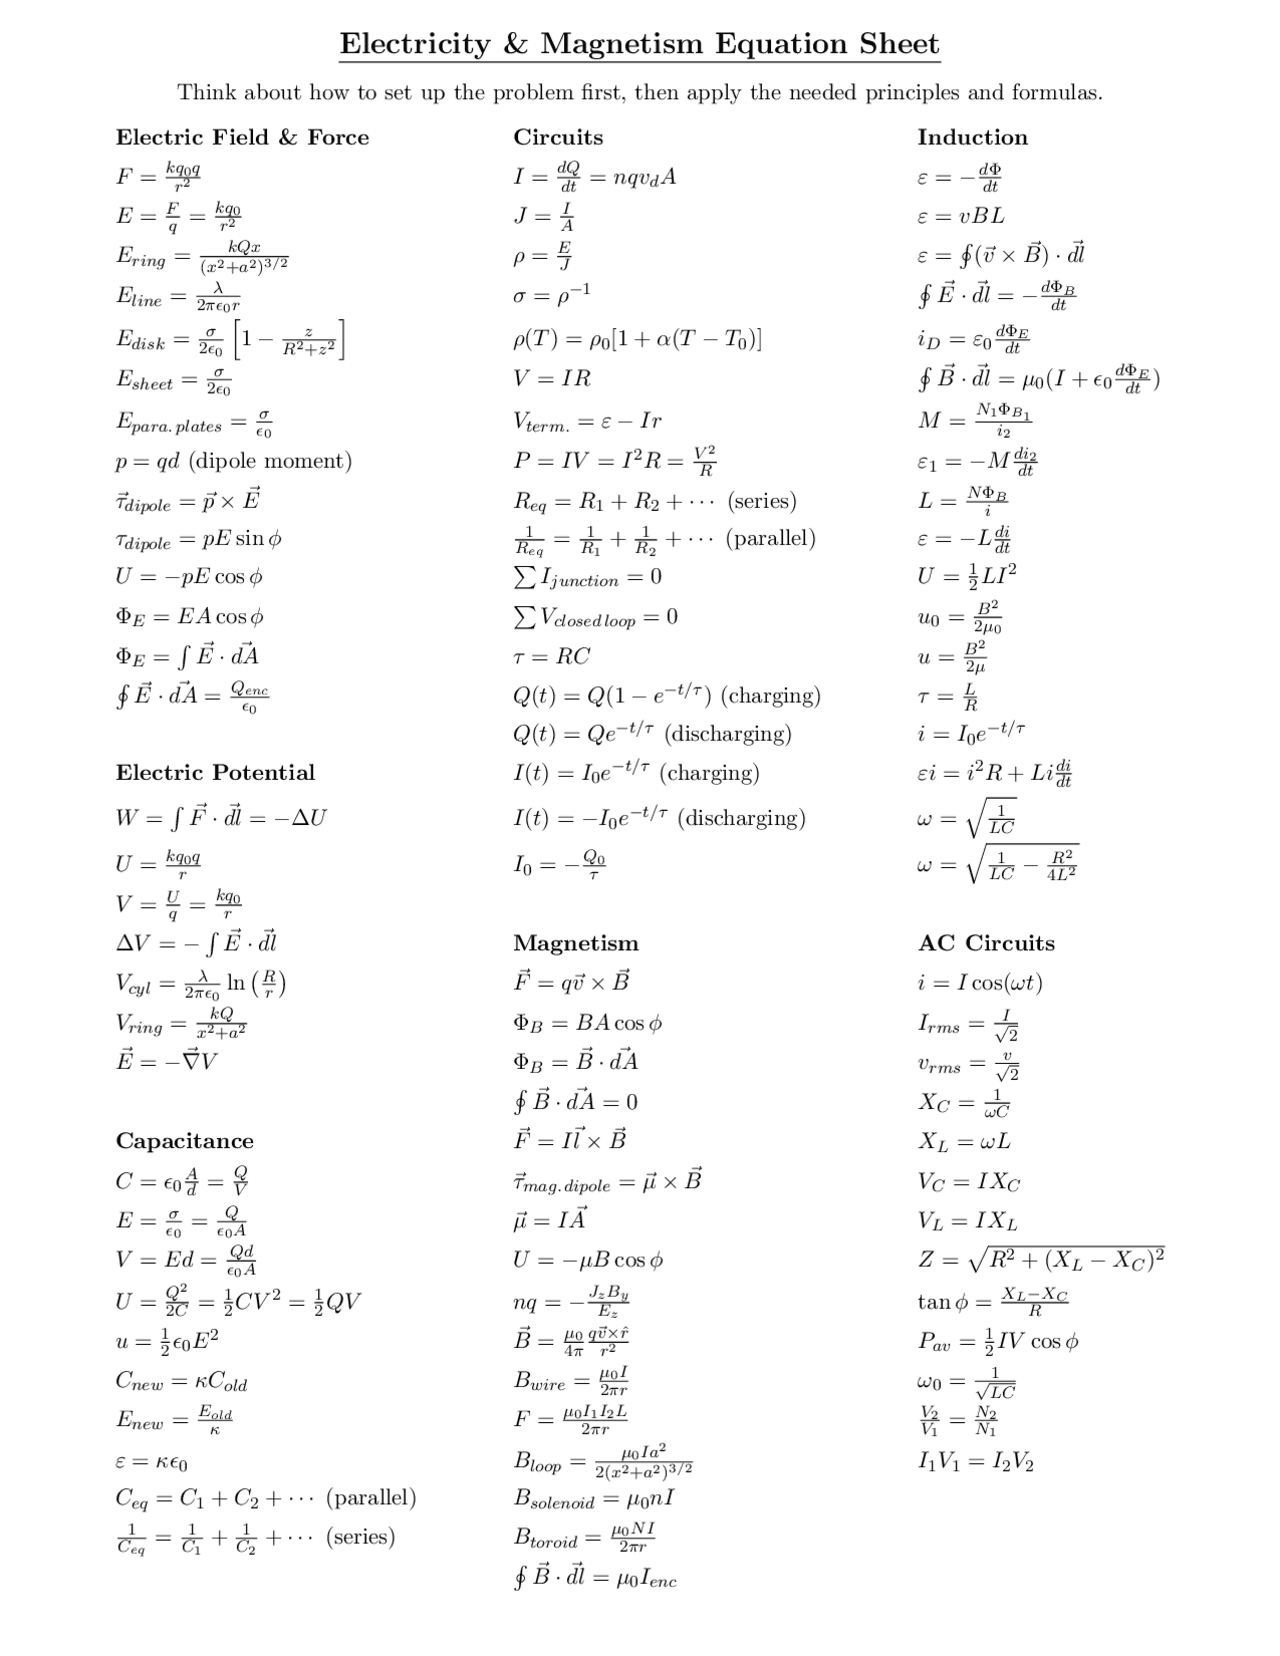 Electricity & Magnetism Equation Sheet
Think about how to set up the problem first, then apply the needed principles and formulas.
Electric Field & Force
F = \frac{kq_0q}{r^2}
E = \frac{F}{q} = \frac{kq_0}{r^2}
E_{ring} = \frac{kQx}{(x^2+a^2)^{3/2}}
E_{line} = \frac{\lambda}{2\pi\epsilon_0 r}
E_{disk} = \frac{\sigma}{2\epsilon_0}\left[1 - \frac{z}{R^2+z^2}\right]
E_{sheet} = \frac{\sigma}{2\epsilon_0}
E_{para. plates} = \frac{\sigma}{\epsilon_0}
p = qd (dipole moment)
\vec{\tau}_{dipole} = \vec{p} \times \vec{E}
\tau_{dipole} = pE \sin\phi
U = -pE \cos\phi
\Phi_E = EA \cos\phi
\Phi_E = \int \vec{E} \cdot \vec{dA}
\oint \vec{E} \cdot \vec{dA} = \frac{Q_{enc}}{\epsilon_0}
Electric Potential
W = \int \vec{F} \cdot \vec{dl} = -\Delta U
U = \frac{kq_0q}{r}
V = \frac{U}{q} = \frac{kq_0}{r}
\Delta V = -\int \vec{E} \cdot \vec{dl}
V_{cyl} = \frac{\lambda}{2\pi\epsilon_0} \ln\left(\frac{R}{r}\right)
V_{ring} = \frac{kQ}{x^2+a^2}
\vec{E} = -\vec{\nabla} V
Capacitance
C = \epsilon_0\frac{A}{d} = \frac{Q}{V}
E = \frac{\sigma}{\epsilon_0} = \frac{Q}{\epsilon_0 A}
V = Ed = \frac{Qd}{\epsilon_0 A}
U = \frac{Q^2}{2C} = \frac{1}{2}CV^2 = \frac{1}{2}QV
u = \frac{1}{2}\epsilon_0 E^2
C_{new} = \kappa C_{old}
E_{new} = \frac{E_{old}}{\kappa}
\varepsilon = \kappa\epsilon_0
C_{eq} = C_1 + C_2 + \cdots (parallel)
\frac{1}{C_{eq}} = \frac{1}{C_1} + \frac{1}{C_2} + \cdots (series)
Circuits
I = \frac{dQ}{dt} = nqv_dA
J = \frac{I}{A}
\rho = \frac{E}{J}
\sigma = \rho^{-1}
\rho(T) = \rho_0[1 + \alpha(T - T_0)]
V = IR
V_{term.} = \varepsilon - Ir
P = IV = I^2R = \frac{V^2}{R}
R_{eq} = R_1 + R_2 + \cdots (series)
\frac{1}{R_{eq}} = \frac{1}{R_1} + \frac{1}{R_2} + \cdots (parallel)
\sum I_{junction} = 0
\sum V_{closed loop} = 0
\tau = RC
Q(t) = Q(1 - e^{-t/\tau}) (charging)
Q(t) = Qe^{-t/\tau} (discharging)
I(t) = I_0e^{-t/\tau} (charging)
I(t) = -I_0e^{-t/\tau} (discharging)
I_0 = -\frac{Q_0}{\tau}
Magnetism
\vec{F} = q\vec{v} \times \vec{B}
\Phi_B = BA \cos\phi
\Phi_B = \vec{B} \cdot \vec{dA}
\oint \vec{B} \cdot \vec{dA} = 0
\vec{F} = I\vec{l} \times \vec{B}
\vec{\tau}_{mag. dipole} = \vec{\mu} \times \vec{B}
\vec{\mu} = I\vec{A}
U = -\mu B \cos\phi
nq = -\frac{J_zB_y}{E_z}
\vec{B} = \frac{\mu_0}{4\pi}\frac{q\vec{v}\times\hat{r}}{r^2}
B_{wire} = \frac{\mu_0 I}{2\pi r}
F = \frac{\mu_0 I_1I_2L}{2\pi r}
B_{loop} = \frac{\mu_0 Ia^2}{2(x^2+a^2)^{3/2}}
B_{solenoid} = \mu_0 nI
B_{toroid} = \frac{\mu_0 NI}{2\pi r}
\oint \vec{B} \cdot \vec{dl} = \mu_0 I_{enc}
Induction
\varepsilon = -\frac{d\Phi}{dt}
\varepsilon = vBL
\varepsilon = \oint(\vec{v} \times \vec{B}) \cdot \vec{dl}
\oint \vec{E} \cdot \vec{dl} = -\frac{d\Phi_B}{dt}
i_D = \varepsilon_0\frac{d\Phi_E}{dt}
\oint \vec{B} \cdot \vec{dl} = \mu_0(I + \epsilon_0\frac{d\Phi_E}{dt})
M = \frac{N_1\Phi_{B_1}}{i_2}
\varepsilon_1 = -M\frac{di_2}{dt}
L = \frac{N\Phi_B}{i}
\varepsilon = -L\frac{di}{dt}
U = \frac{1}{2}LI^2
u_0 = \frac{B^2}{2\mu_0}
u = \frac{B^2}{2\mu}
\tau = \frac{L}{R}
i = I_0e^{-t/\tau}
\varepsilon i = i^2R + Li\frac{di}{dt}
\omega = \sqrt{\frac{1}{LC}}
\omega = \sqrt{\frac{1}{LC} - \frac{R^2}{4L^2}}
AC Circuits
i = I \cos(\omega t)
I_{rms} = \frac{I}{\sqrt{2}}
v_{rms} = \frac{v}{\sqrt{2}}
X_C = \frac{1}{\omega C}
X_L = \omega L
V_C = IX_C
V_L = IX_L
Z = \sqrt{R^2 + (X_L - X_C)^2}
\tan\phi = \frac{X_L-X_C}{R}
P_{av} = \frac{1}{2}IV \cos\phi
\omega_0 = \frac{1}{\sqrt{LC}}
\frac{V_2}{V_1} = \frac{N_2}{N_1}
I_1V_1 = I_2V_2